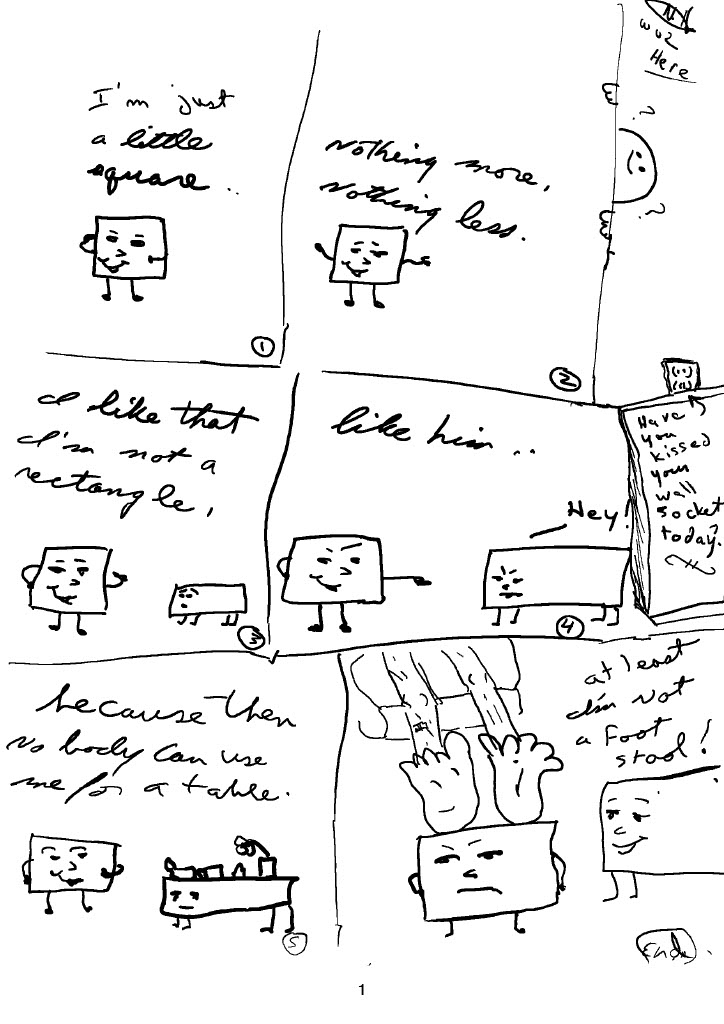 I'm just
a little
square..
①
Nothing more,
Nothing less.
②
wuz
Here
?
?
I like that
I'm not a
rectangle,
③
like him..
Hey!
④
Have
you
kissed
your
wall
socket
today?
because then
No body can use
me for a table.
⑤
at least
I'm Not
a Foot
stool!
End.
1